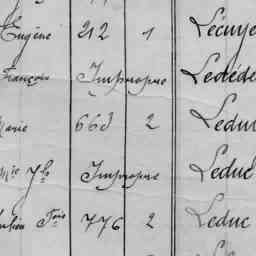 Eugène 212 1 Lécuye
François Impropre Ledéde
Marie 663 2 Leduc
Mie Jh Impropre Leduc
Julien Fois 776 2 Leduc